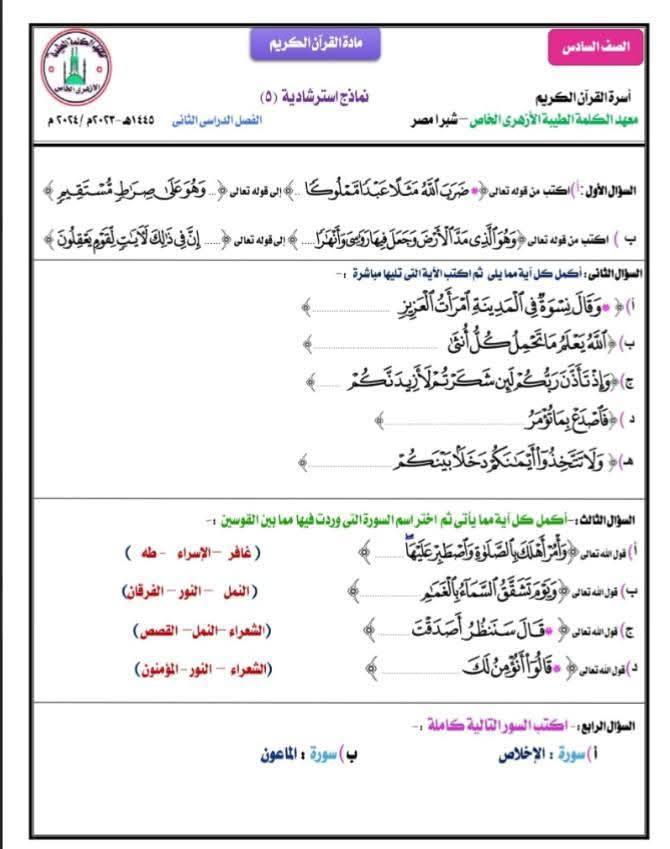 الصف السادس
مادة القرآن الكريم
أسرة القرآن الكريم
نماذج استرشادية (٥)
معهد الكلمة الطيبة الأزهرى الخاص – شبرا مصر
الفصل الدراسى الثانى
١٤٤٥هـ-٢٠٢٣م / ٢٠٢٤ م
السؤال الأول : أ) اكتب من قوله تعالى ﴿ ۞ ضَرَبَ ٱللَّهُ مَثَلًا عَبْدًا مَّمْلُوكًا .. ﴾ إلى قوله تعالى ﴿ ... وَهُوَ عَلَىٰ صِرَٰطٍ مُّسْتَقِيمٍ ﴾
ب ) اكتب من قوله تعالى ﴿ وَهُوَ ٱلَّذِى مَدَّ ٱلْأَرْضَ وَجَعَلَ فِيهَا رَوَٰسِىَ وَأَنْهَٰرًا .... ﴾ إلى قوله تعالى ﴿ ..... إِنَّ فِى ذَٰلِكَ لَءَايَٰتٍ لِّقَوْمٍ يَعْقِلُونَ ﴾
السؤال الثانى : أكمل كل آية مما يلى ثم اكتب الآية التى تليها مباشرة :-
أ) ﴿ ۞ وَقَالَ نِسْوَةٌ فِى ٱلْمَدِينَةِ ٱمْرَأَتُ ٱلْعَزِيزِ .................... ﴾
ب) ﴿ ٱللَّهُ يَعْلَمُ مَا تَحْمِلُ كُلُّ أُنثَىٰ .................... ﴾
ج) ﴿ وَإِذْ تَأَذَّنَ رَبُّكُمْ لَئِن شَكَرْتُمْ لَأَزِيدَنَّكُمْ ...... ﴾
د ) ﴿ فَٱصْدَعْ بِمَا تُؤْمَرُ .................... ﴾
هـ) ﴿ وَلَا تَتَّخِذُوٓا۟ أَيْمَٰنَكُمْ دَخَلًۢا بَيْنَكُمْ .................... ﴾
السؤال الثالث :- أكمل كل آية مما يأتى ثم اختر اسم السورة التى وردت فيها مما بين القوسين :-
أ ) قول الله تعالى ﴿ وَأْمُرْ أَهْلَكَ بِٱلصَّلَوٰةِ وَٱصْطَبِرْ عَلَيْهَا ........ ﴾ ( غافر – الإسراء – طه )
ب) قول الله تعالى ﴿ وَيَوْمَ تَشَقَّقُ ٱلسَّمَآءُ بِٱلْغَمَٰمِ ............ ﴾ (النمل – النور – الفرقان )
ج) قول الله تعالى ﴿ ۞ قَالَ سَنَنظُرُ أَصَدَقْتَ ........ ﴾ (الشعراء – النمل – القصص )
د ) قول الله تعالى ﴿ ۞ قَالُوٓا۟ أَنُؤْمِنُ لَكَ ................ ﴾ (الشعراء – النور – المؤمنون )
السؤال الرابع :- اكتب السور التالية كاملة :-
أ ) سورة : الإخلاص
ب) سورة : الماعون